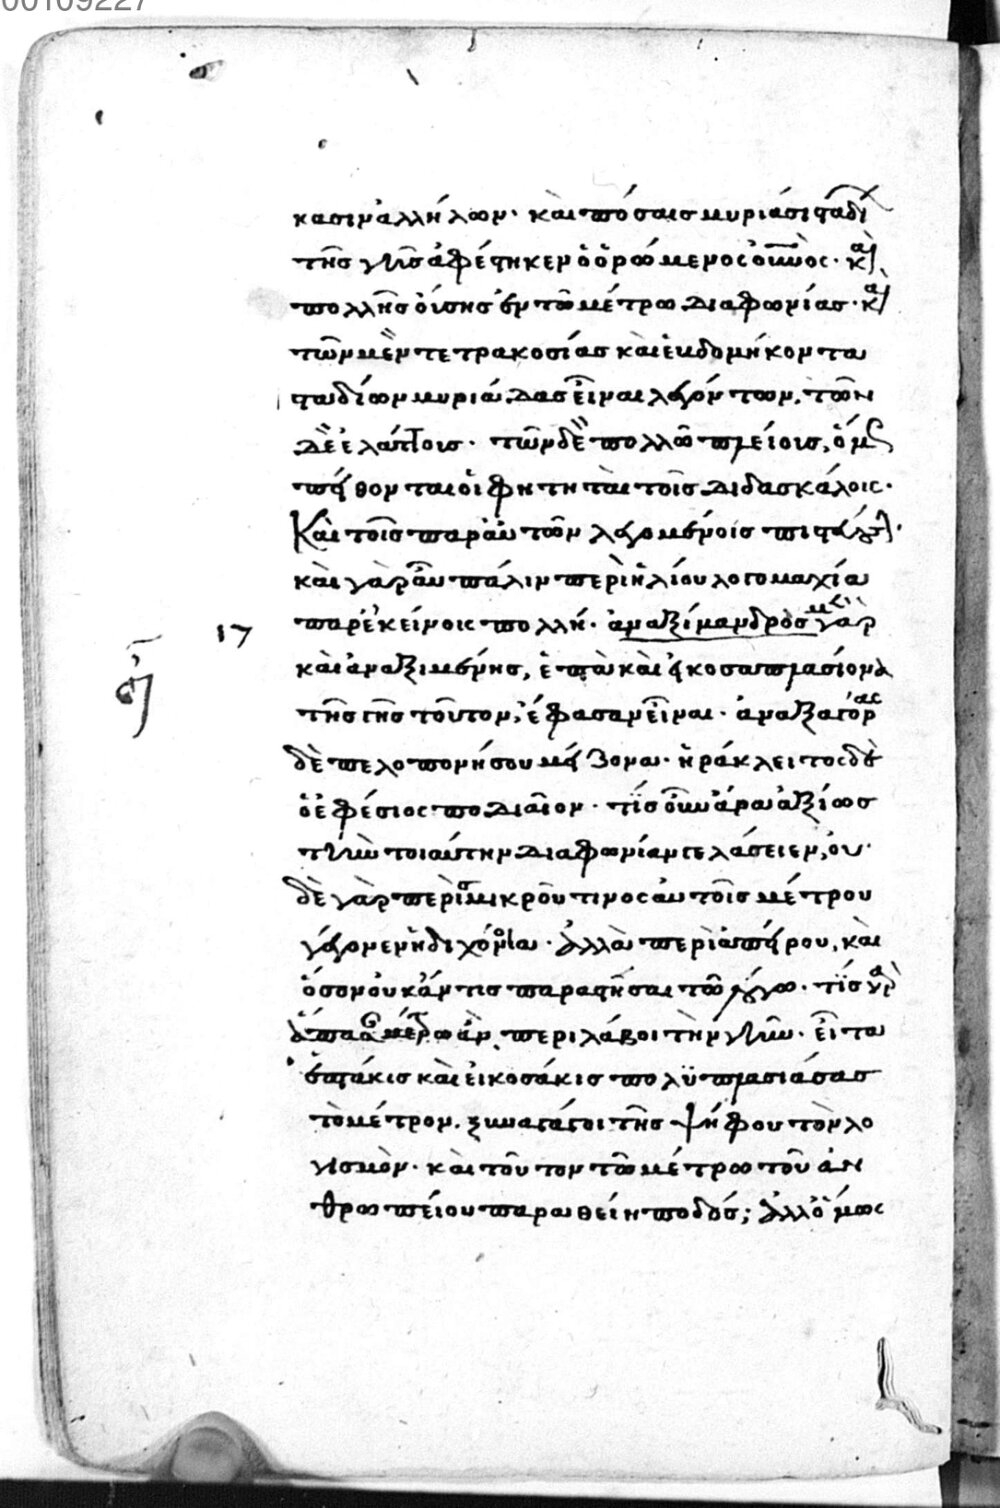 00109227
κασιν ἀλλήλων· καὶ πόσαις μυριάσι σταδί
τῆς γῆς ἀφέστηκεν ὁ ὁρώμενος οὐνὸς· καὶ
πολλῆς οὔσης ἐν τῶ μέτρω διαφωνίας· καὶ
τῶν μὲν τετρακοσίας καὶ ἑβδομήκοντα
σταδίων μυριάδας εἶναι λεγόντων, τῶν
δὲ ἐλάττοις· τῶν δὲ πολλῶ πλείοις, ὅμς
πείθονται οἱ φητηταὶ τοῖς διδασκάλοις·
Καὶ τοῖς παρ' αὐτῶν λεγομένοις πιστεύ
καὶ γὰρ αὖ πάλιν περὶ ἡλίου λογομαχία
παρ' ἐκείνοις πολλή· ἀναξίμανδρος μὲν γὰρ
17 καὶ ἀναξιμένης, ἑπτὰ καὶ εἰκοσαπλασίονα
τῆς γῆς τοῦτον, ἔφασαν εἶναι· ἀναξαγόρας
δὲ πελοπονήσου μείζονα· ἡράκλειτος δὲ
ὁ ἐφέσιος ποδιαῖον· τίς οὖν ἄρα ἀξίως
τὴν τοιαύτην διαφωνίαν γελάσειεν, οὐ
δὲ γὰρ περὶ σμικροῦ τινος αὐτοῖς μέτρου
γέγονεν ἡ διχόνοια· ἀλλὰ περὶ ἀπείρου, καὶ
ὅσον οὐκ ἄν τις παραστῆσαι τῶ λόγω· τίς γὰρ
ἅπασαν μέτρω ἂν περιλάβοι τὴν γῆν· εἶτα
ἑπτάκις καὶ εἰκοσάκις πολϋπλασιάσας
τὸ μέτρον. ξυναγάγοι τῆς ψήφου τὸν λο
γισμὸν· καὶ τοῦτον τῶ μέτρω τοῦ ἀν
θρωπείου παραθείη ποδός; ἀλλ' ὅμως